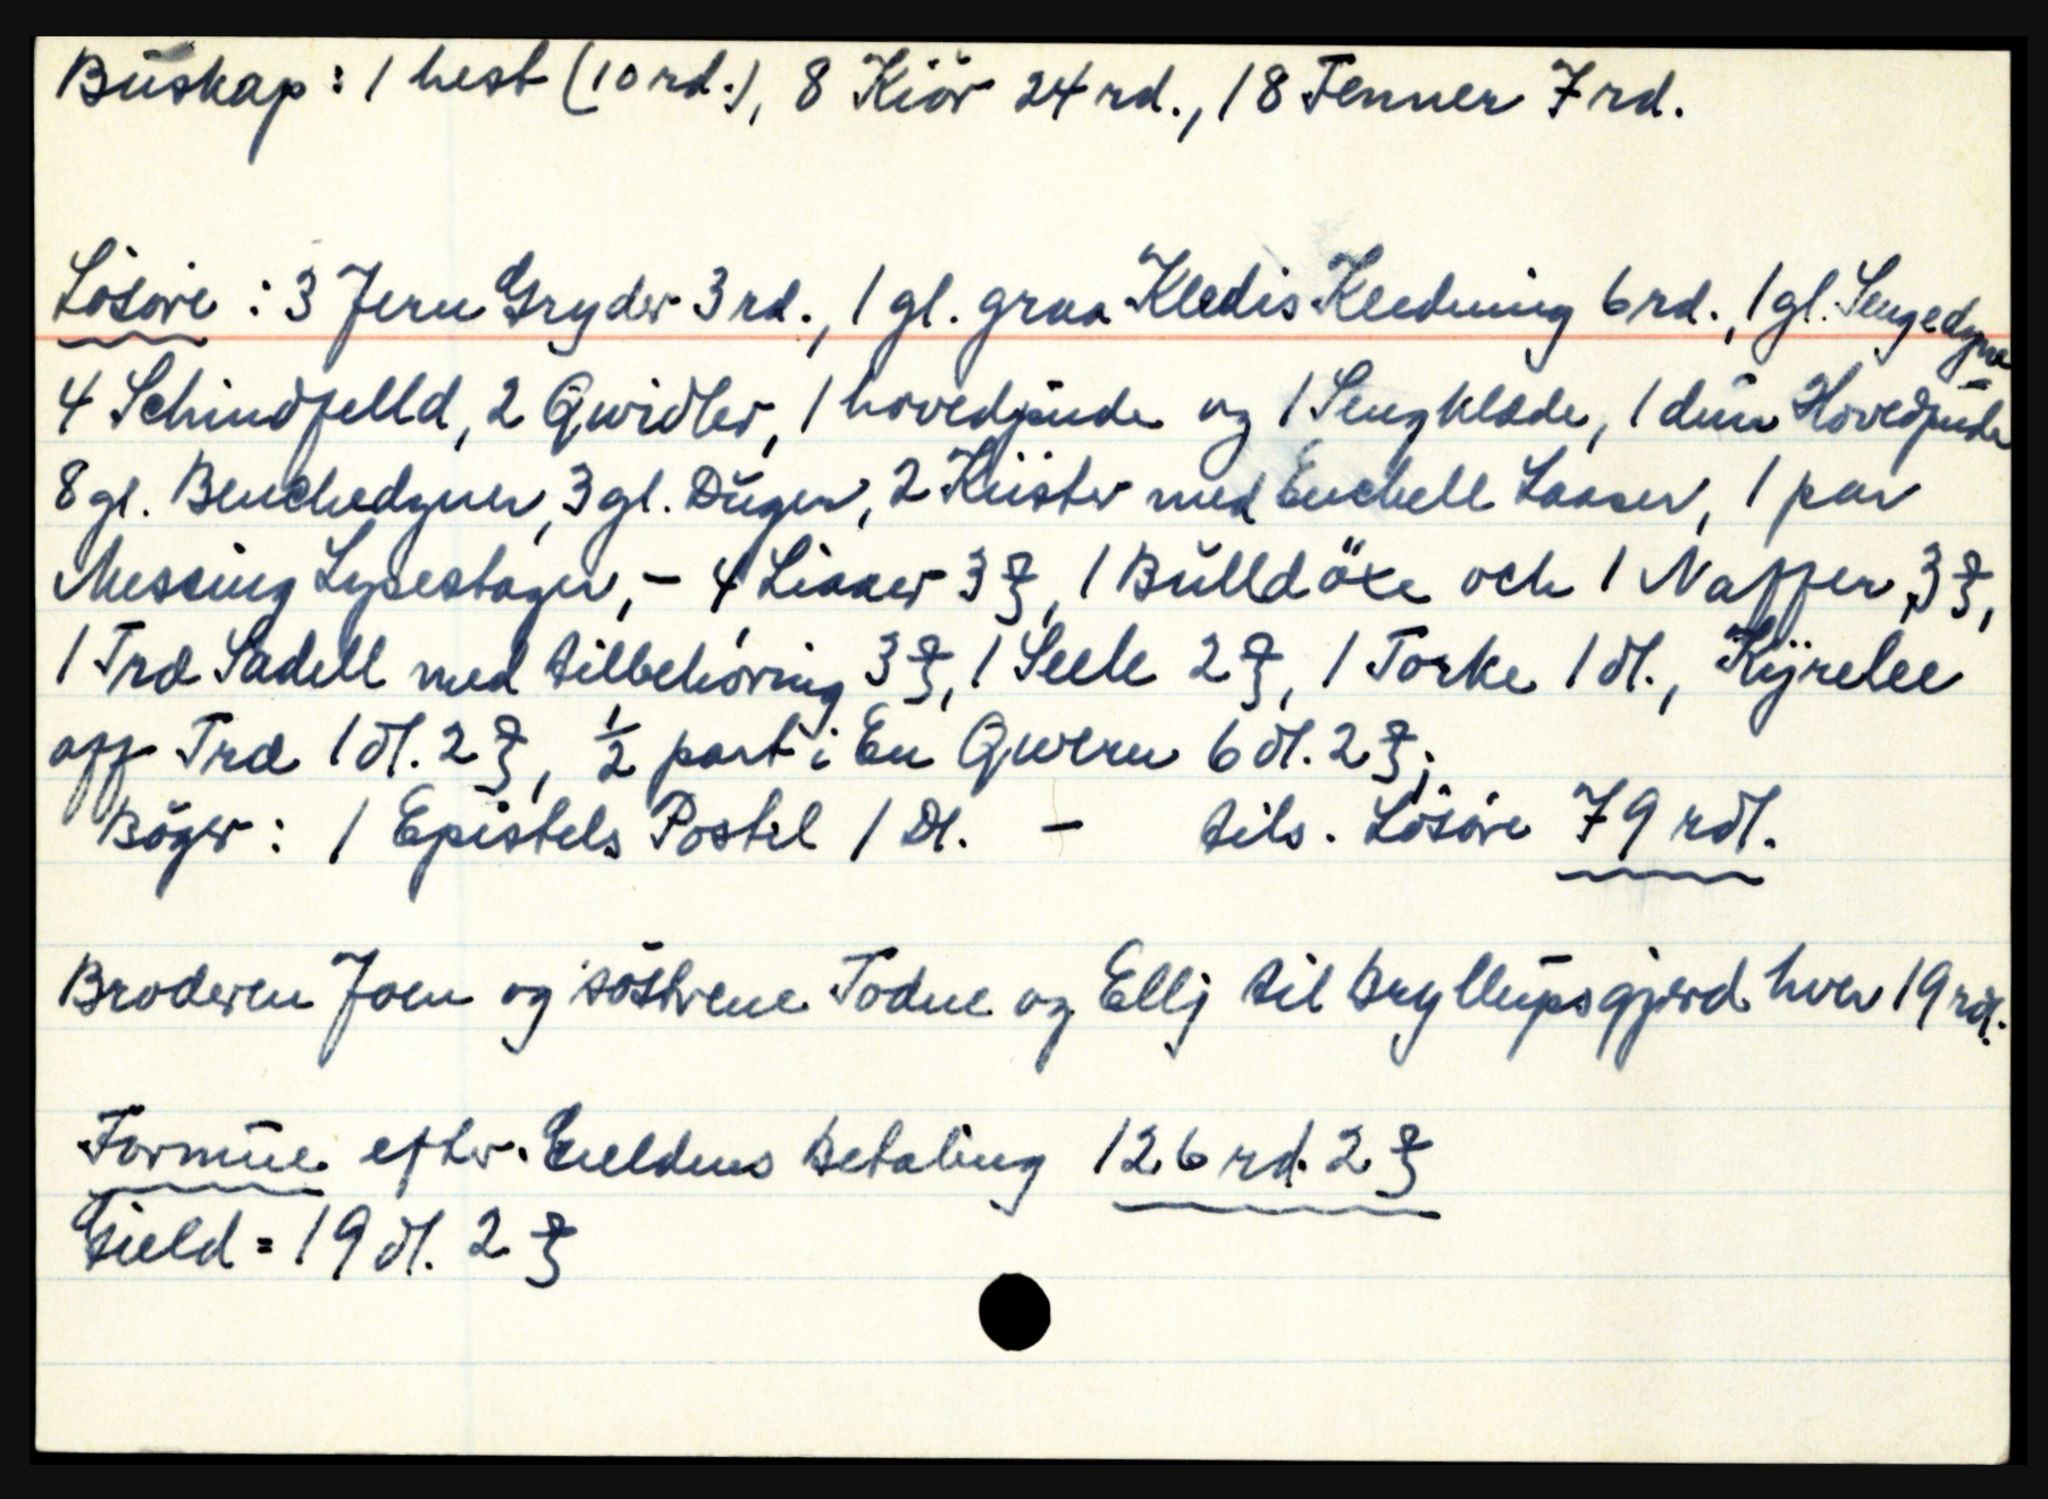 Buskap : 1 hest (10 rd.), 8 Kiör 24 rd., 18 Fenner 7 rd.
Lösöre : 3 Jern Gryder 3 rd., 1 gl. graa Kledis Kledning 6 rd., 1 gl. Sengedyne
4 Schindfelld, 2 Qwidler, 1 hovedpude og 1 Sengklæde, 1 dun Hovedpude
8 gl. Benchedyner, 3 gl. Duger, 2 Kiister med Enchell Laaser, 1 par
Messing Lysestager, - 4 Liaaer 3 ℥, 1 Bulldöxe och 1 Naffer 3 ℥,
1 Træ Sadell med tilbehöring 3 ℥, 1 Seele 2 ℥, 1 Torke 1 dl., Kijrelee
aff Træ 1 dl. 2 ℥, ½ part i En Qwern 6 dl. 2 ℥;
Böger : 1 Epistels Postil 1 Dl. - tils. Lösöre 79 rdl.
Broderen Joen og söstrene Todne og Ellj til Bryllupsgjerd hver 19 rdl.
Formue efter Gieldens Betaling 126 rd. 2 ℥
Gield = 19 dl. 2 ℥